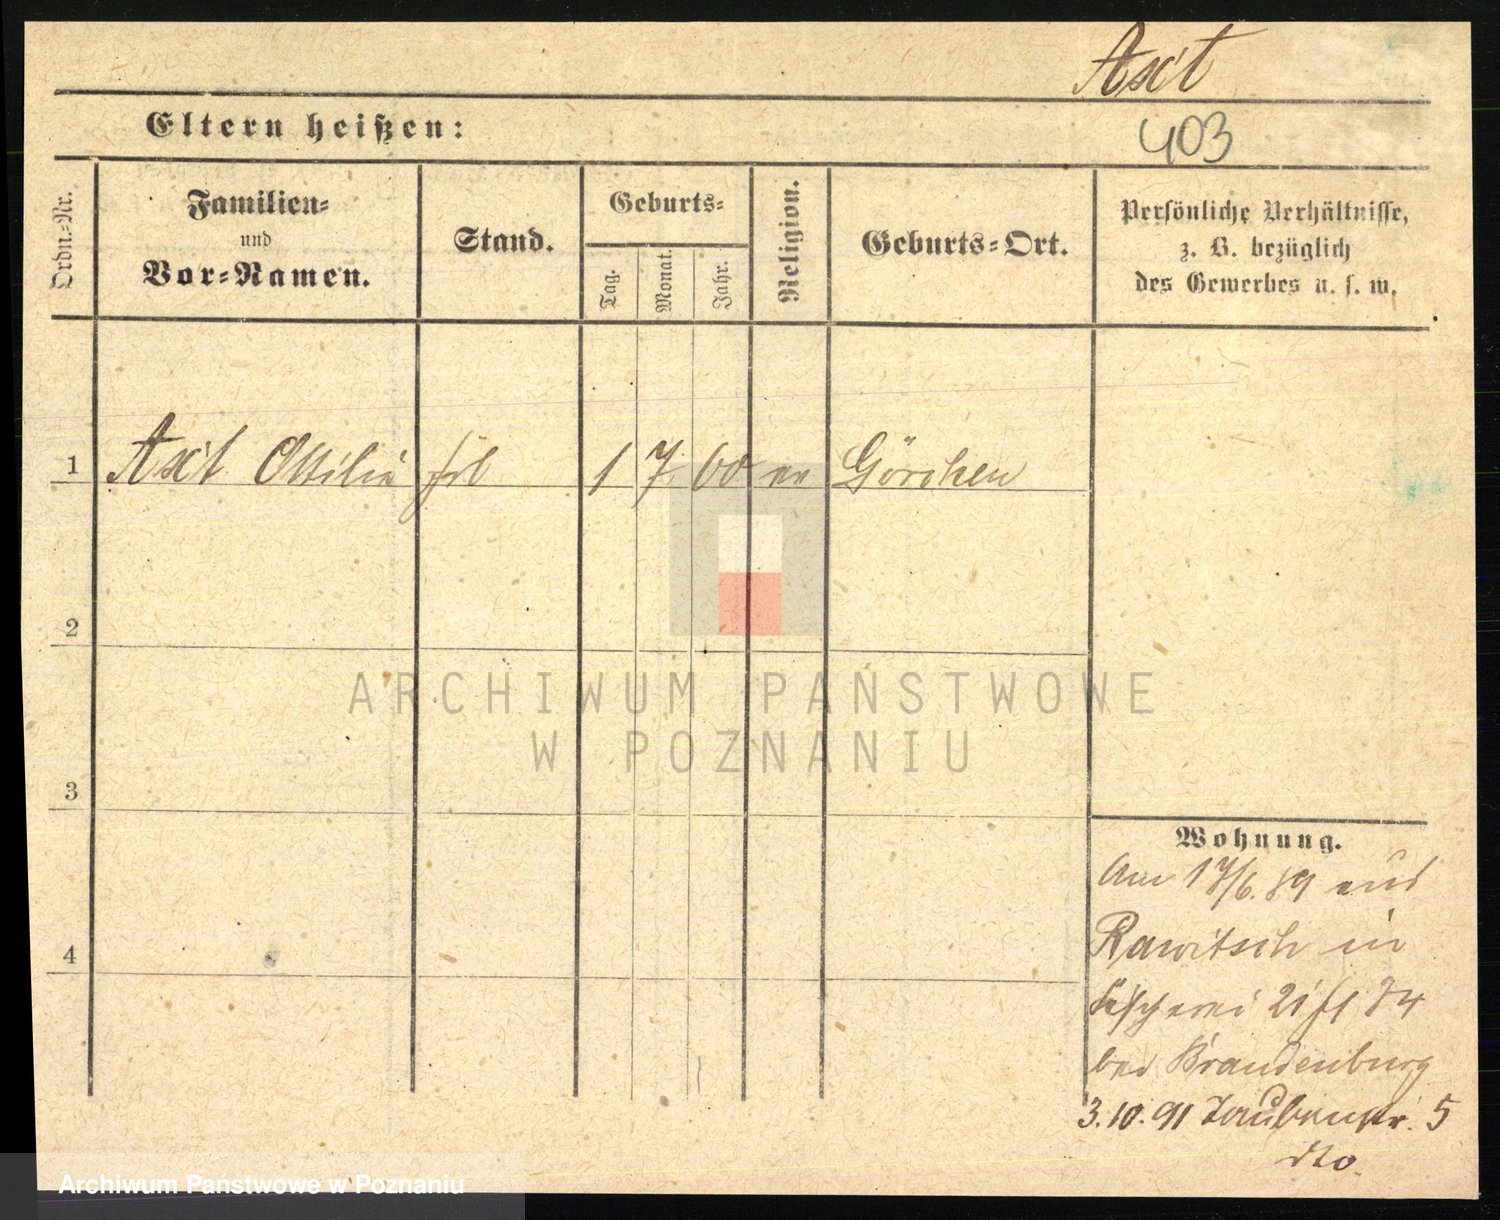 Axt
403
Eltern heißen:
Ordn.-Nr.
Familien-
und
Vor-Namen.
Stand.
Geburts-
Tag.
Monat.
Jahr.
Religion.
Geburts-Ort.
Persönliche Verhältnisse,
z. B. bezüglich
des Gewerbes u. s. w.
1 Axt Ottilie 1 7 60 ev Görchen
2
3
4
Wohnung.
Am 17/6. 89 aus
Rawitsch in
Fischerei 21
bei Brandenburg
3.10.91 Taubenstr. 5
dto
ARCHIWUM PAŃSTWOWE
W POZNANIU
Archiwum Państwowe w Poznaniu